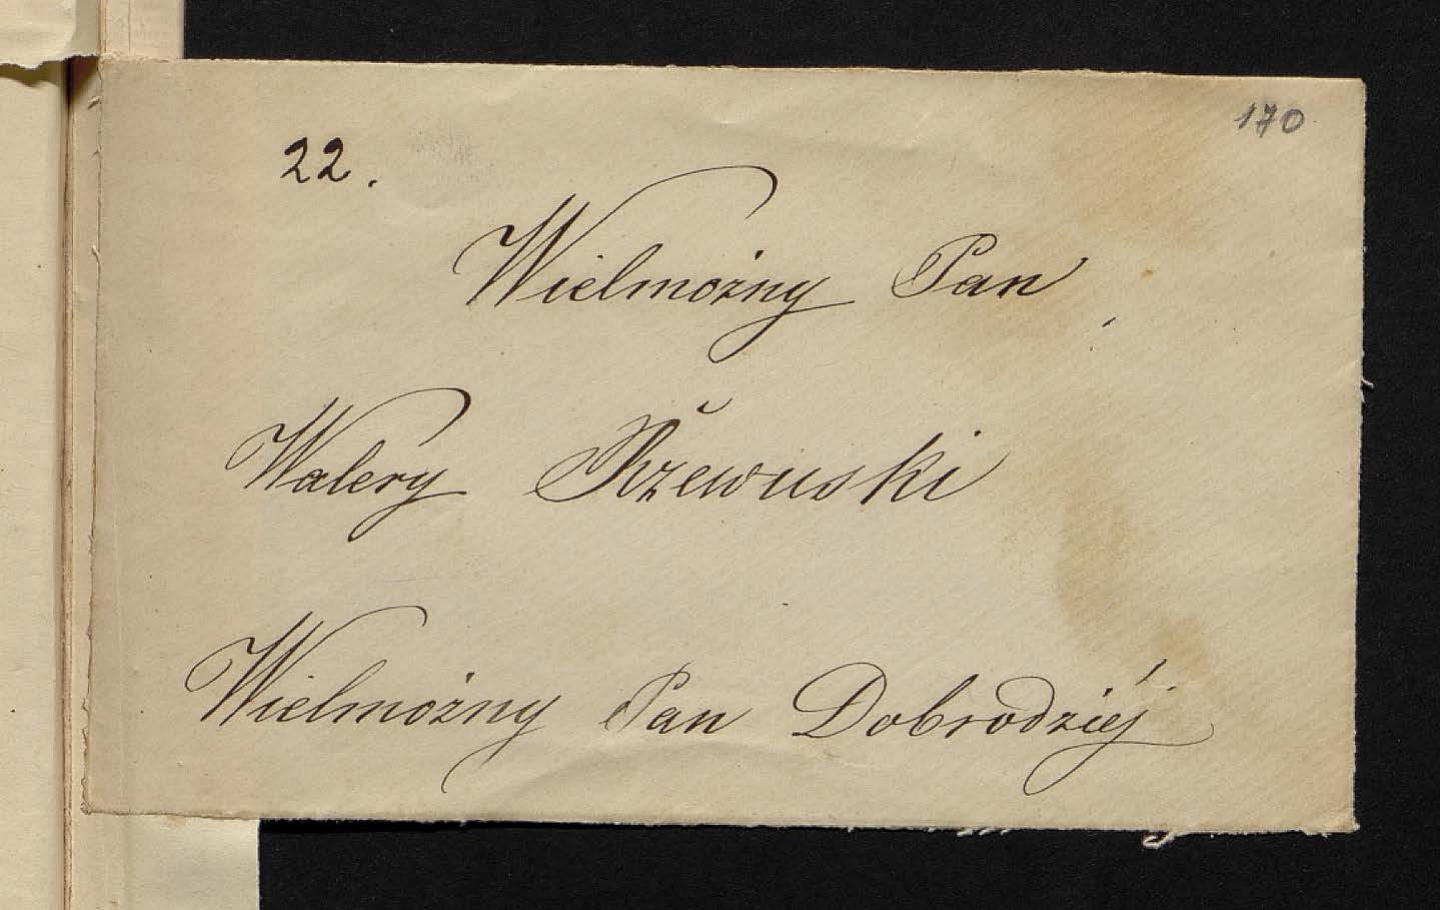 170
22.
Wielmożny Pan
Walery Rzewuski
Wielmożny Pan Dobrodziéj